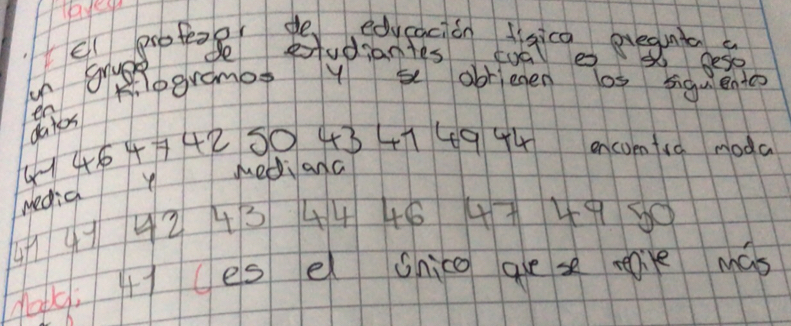 El profesor de educación fisica pregunta a
un grupo de estudiantes cual es su peso
en Kilogramos y se obtienen los siguientes
datos
41 46 47 42 50 43 41 49 44 encuentra moda
media y mediana
41 41 42 43 44 46 47 49 50
Moda: 41 (es el único que se repite más